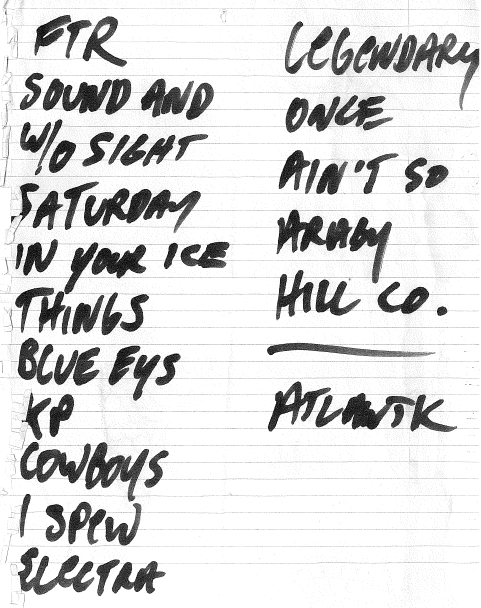 FTR
SOUND AND
W/O SIGHT
SATURDAY
IN YOUR ICE
THINGS
BLUE EYS
KP
COWBOYS
I SPEW
ELECTRA
LEGENDARY
ONCE
AIN'T SO
ARABY
HILL CO.
ATLANTIK